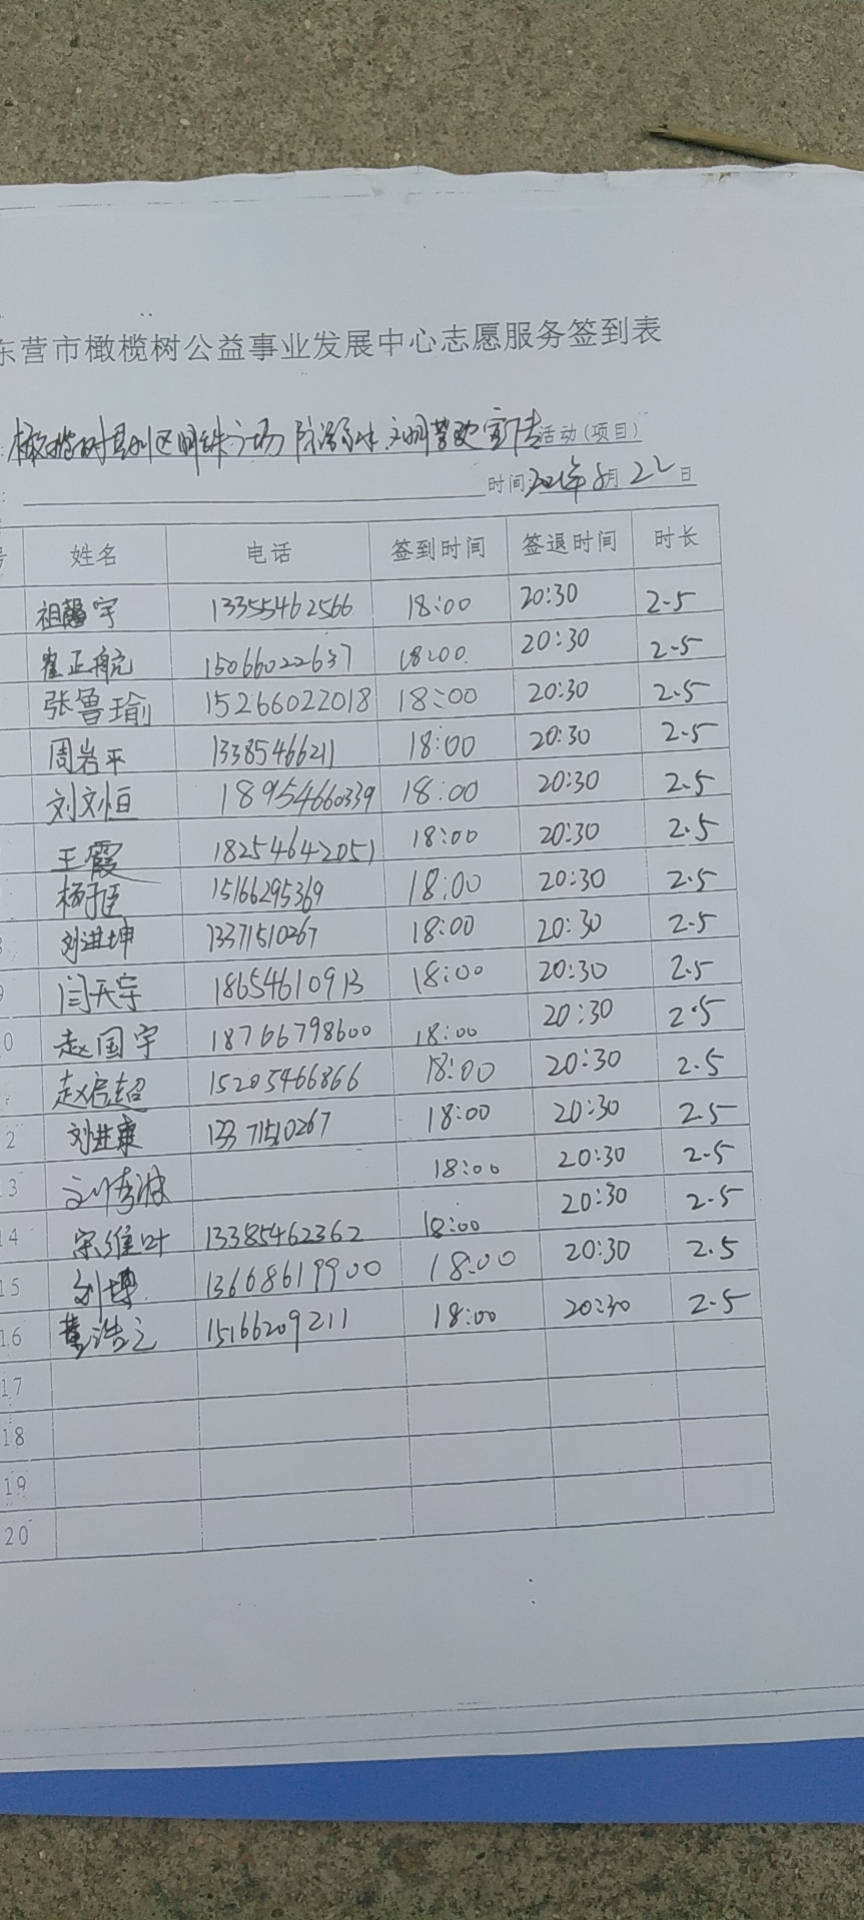 东营市橄榄树公益事业发展中心志愿服务签到表
橄榄树垦利区明珠广场防溺水.文明劳动宣传活动(项目)
时间: 8月22日
号 姓名 电话 签到时间 签退时间 时长
祖馨宇 13355462566 18:00 20:30 2.5
崔正航 15066022637 18:00 20:30 2.5
张鲁瑜 15266022018 18:00 20:30 2.5
周岩平 13385466211 18:00 20:30 2.5
刘文恒 18954660339 18:00 20:30 2.5
王霞 18254642051 18:00 20:30 2.5
15166295369 18:00 20:30 2.5
刘进坤 13371510267 18:00 20:30 2.5
9 闫天宇 18654610913 18:00 20:30 2.5
0 赵国宇 18766798600 18:00 20:30 2.5
赵启超 15205466866 18:00 20:30 2.5
2 刘进康 13371510267 18:00 20:30 2.5
3 18:00 20:30 2.5
14 宋维叶 13385462362 18:00 20:30 2.5
15 刘博 13668619900 18:00 20:30 2.5
16 黄浩之 15166209211 18:00 20:30 2.5
17
18
19
20